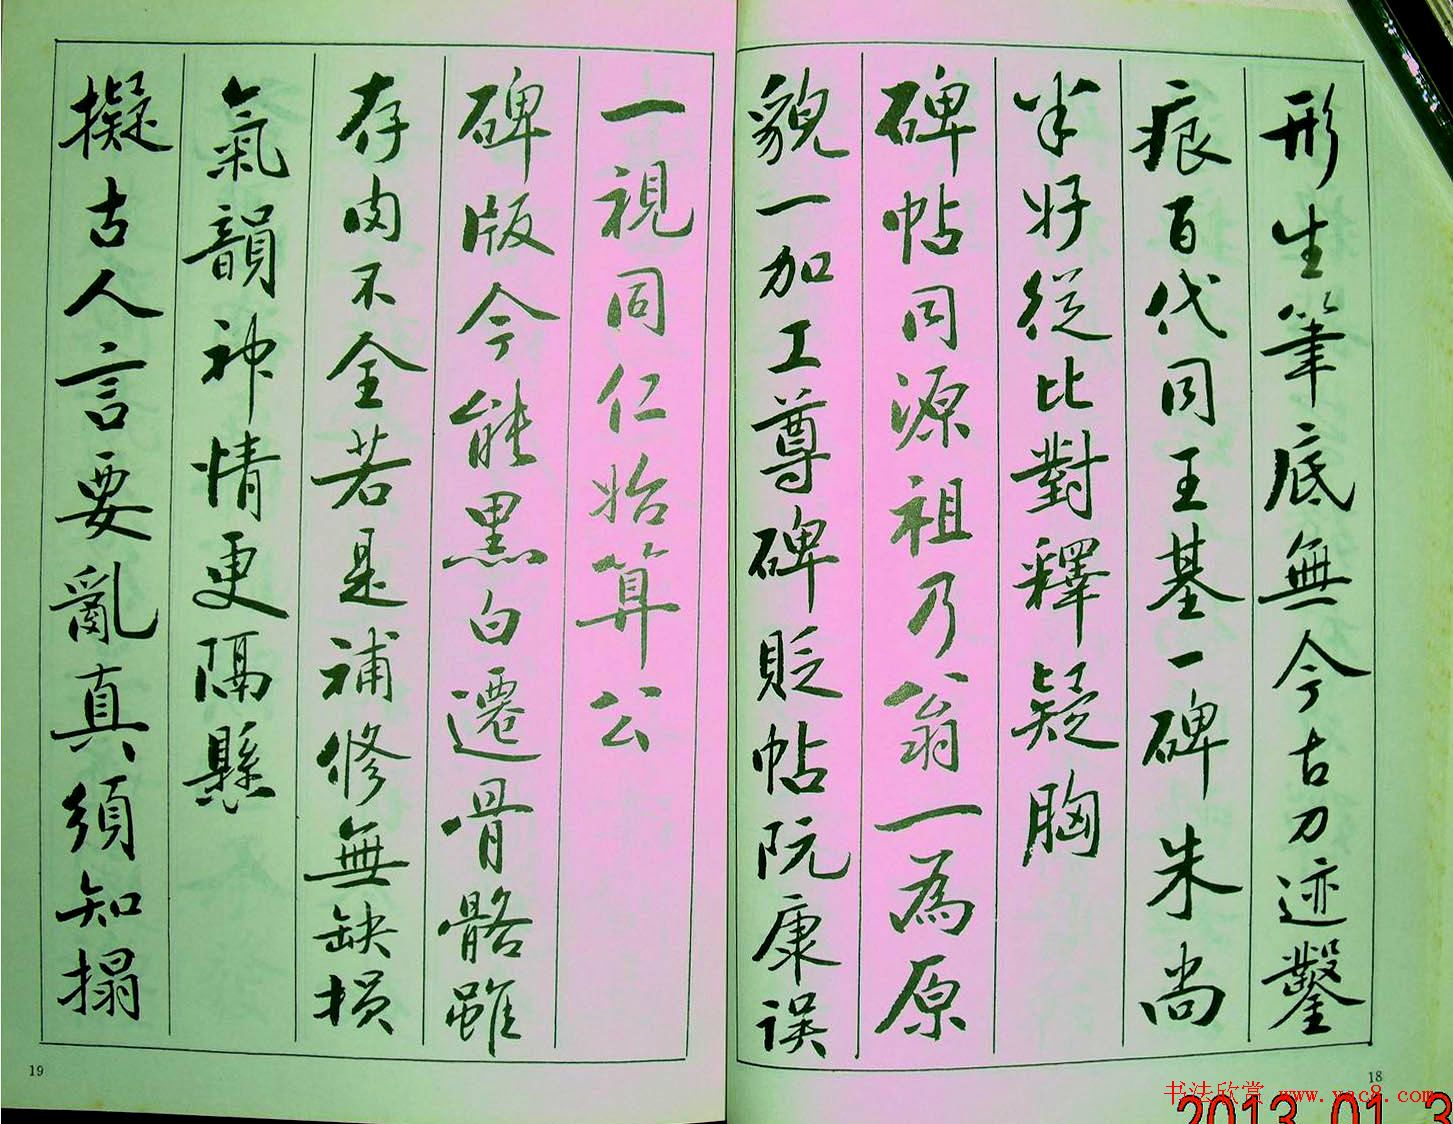 形生筆底無今古刀迹鑿
痕百代同王基一碑朱尚
半好從比對釋疑胸
碑帖同源祖乃翁一為原
貌一加工尊碑貶帖阮康誤
一視同仁始算公
碑版今能黑白遷骨骼雖
存肉不全若是補修無缺损
氣韻神情更隔懸
擬古人言要亂真須知搨
18
19
书法欣赏 www.yac8.com
2013 01 3